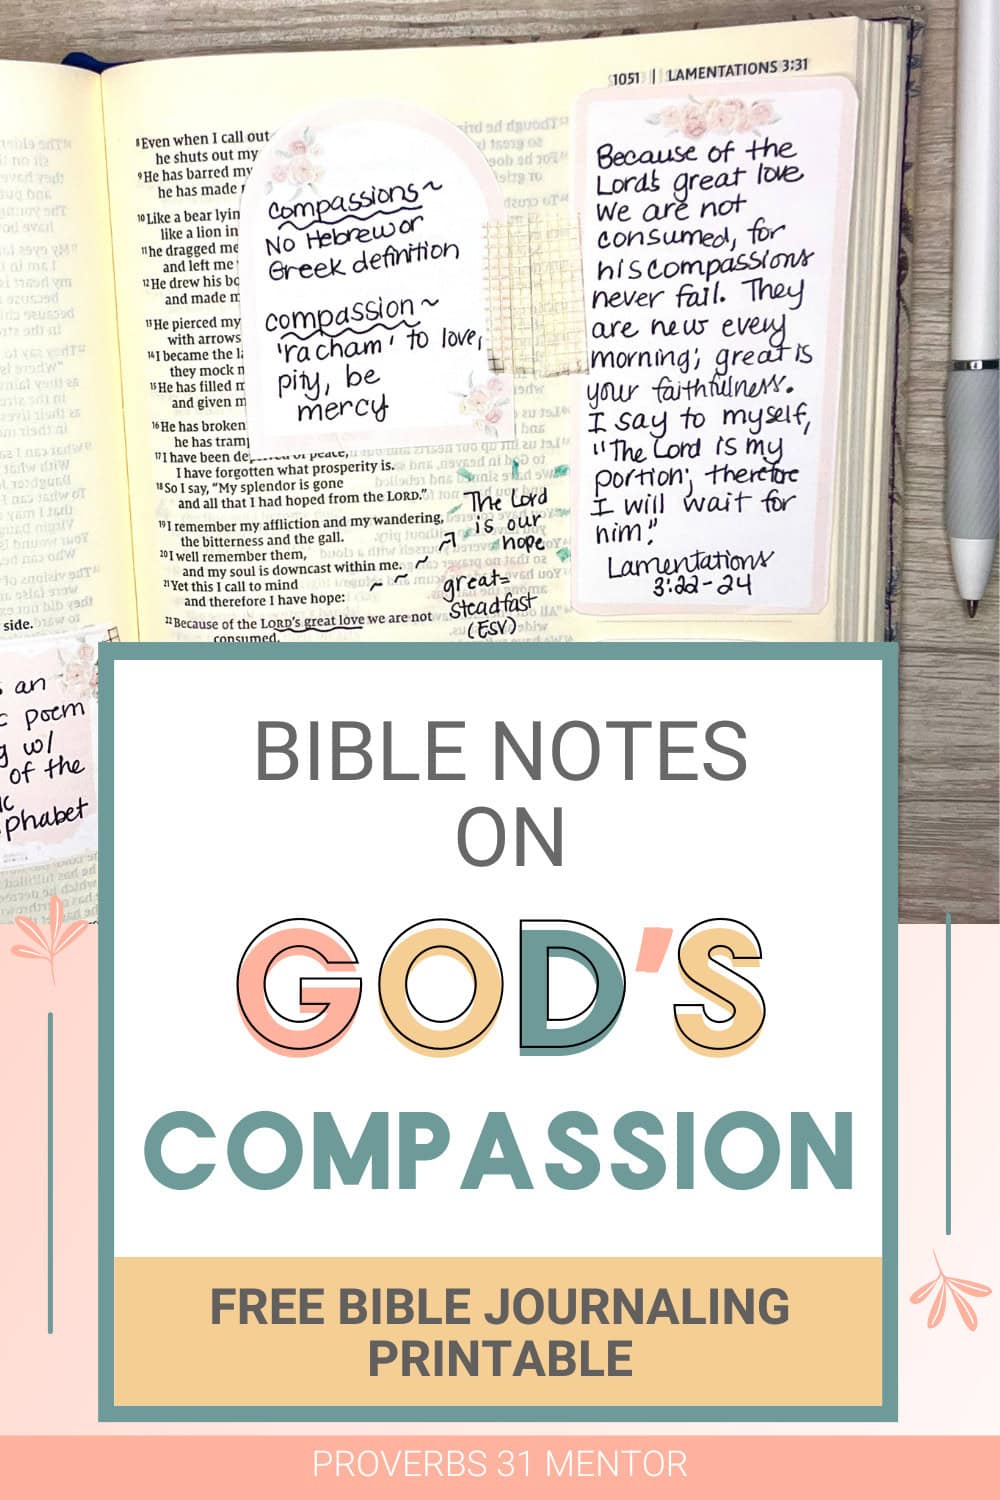 1051 | LAMENTATIONS 3:31
8Even when I call out
he shuts out my
9He has barred my
he has made
10Like a bear lyin
like a lion in
11he dragged me
and left me
12He drew his bo
and made m
13He pierced my
with arrows
14I became the l
they mock n
15He has filled m
and given m
16He has broken
he has tramp
17I have been de of peace,
I have forgotten what prosperity is.
18So I say, "My splendor is gone
and all that I had hoped from the LORD."
19I remember my affliction and my wandering,
the bitterness and the gall.
20I well remember them,
and my soul is downcast within me.
21Yet this I call to mind
and therefore I have hope:
22Because of the LORD's great love we are not
consumed,
compassions~
No Hebrew or
Greek definition
compassion~
'racham' to love,
pity, be
mercy
The Lord
is our
hope
great=
steadfast
(ESV)
Because of the
Lord's great love
we are not
consumed, for
his compassions
never fail. They
are new every
morning; great is
your faithfulness.
I say to myself,
"The Lord is my
portion; therefore
I will wait for
him."
Lamentations
3:22-24
side.
s an
c poem
g w/
of the
ic
phabet
BIBLE NOTES
ON
GOD'S
COMPASSION
FREE BIBLE JOURNALING
PRINTABLE
PROVERBS 31 MENTOR